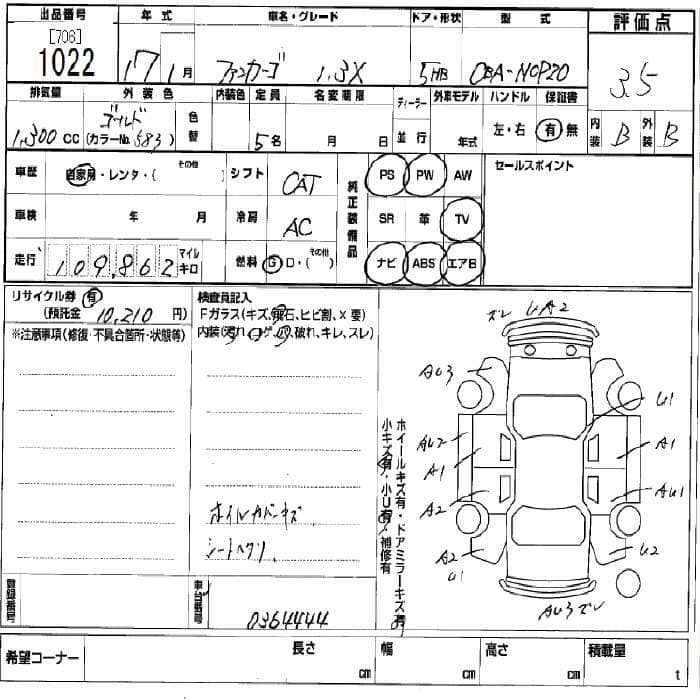 出品番号 年式 車名・グレード ドア・形状 型式 評価点
[706]
1022 17年 1月 ファンカーゴ 1.3X 5HB CBA-NCP20 3.5
排気量 外装色 内装色 定員 名変期限 ディーラー 外車モデル ハンドル 保証書
1,300 CC ゴールド (カラーNo. 583) 色替 5名 月 日 並行 年式 左・右 有 無 内装 B 外装 B
車歴 自家用・レンタ・( その他 ) シフト OAT 純正装備品 PS PW AW セールスポイント
車検 年 月 冷房 AC SR 革 TV
走行 109,862 マイル キロ 燃料 G D・( その他 ) ナビ ABS エアB
リサイクル券 有
(預託金 10,210 円)
※注意事項(修復・不具合箇所・状態等)
検査員記入
Fガラス(キズ,飛石,ヒビ割,X要)
内装(汚れ,コゲ,穴,破れ,キレ,スレ)
ホイルカバーキズ
シートヘタリ
ホイールキズ有・ドアミラーキズ有
小キズ有・小U有・補修有
ズレ UA2
AU3
U1
AU2
A1
A1
A2
AU1
A2
U1
U2
AU3ズレ
登録番号 車台番号 0364444
希望コーナー 長さ cm 幅 cm 高さ cm 積載量 t